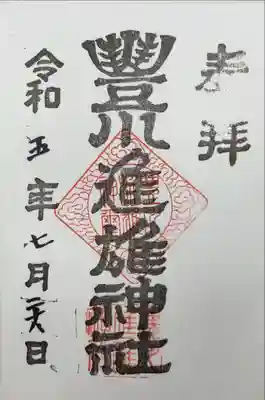 奉拝
豊川進雄神社
令和五年七月二六日